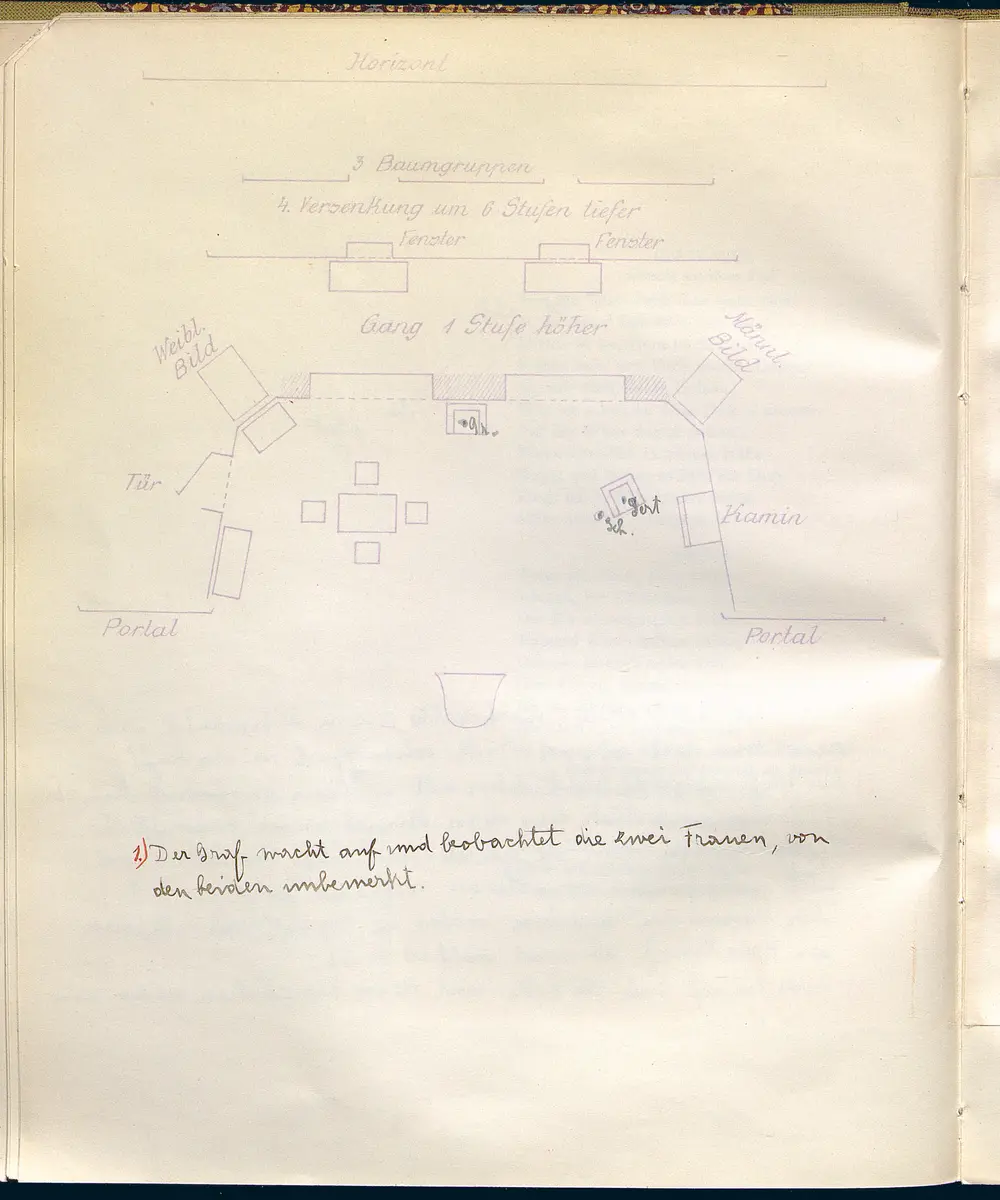 Horizont
3 Baumgruppen
4. Versenkung um 6 Stufen tiefer
Fenster
Fenster
Gang 1 Stufe höher
Weibl.
Bild
Männl.
Bild
Gr.
Tür
Gert
Sch.
Kamin
Portal
Portal
1.) Der Graf wacht auf und beobachtet die zwei Frauen, von
den beiden unbemerkt.